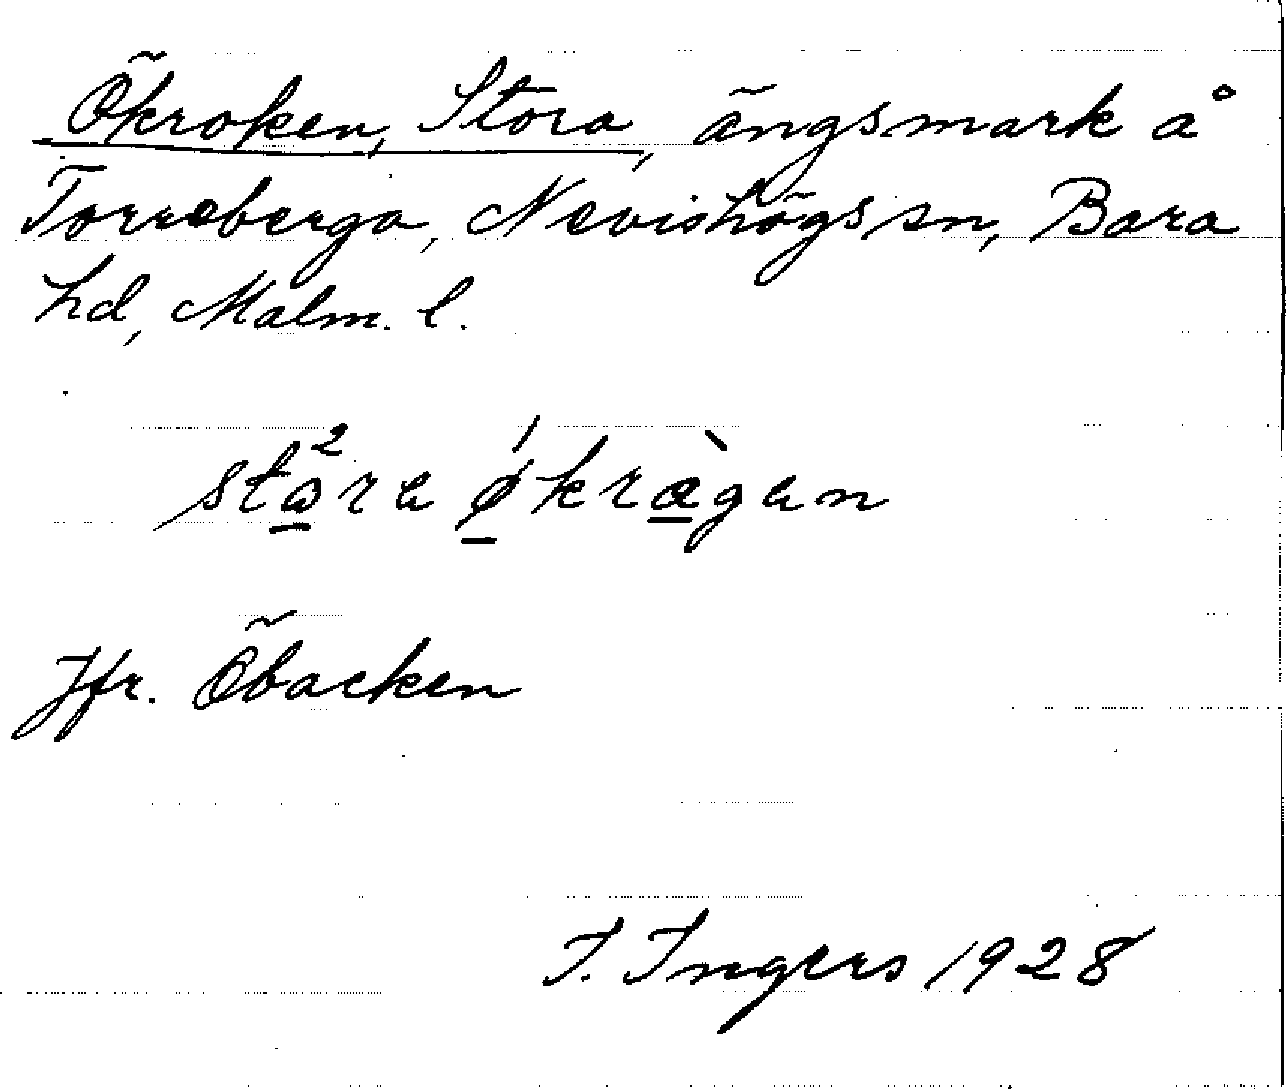 Ökroken, Stora, ängsmark å
Torreberga, Nevishögs sn, Bara
hd, Malm. l.
stω̱²ra ǿ̱kræ̱̀gan
Jfr. Öbacken
I. Ingers 1928